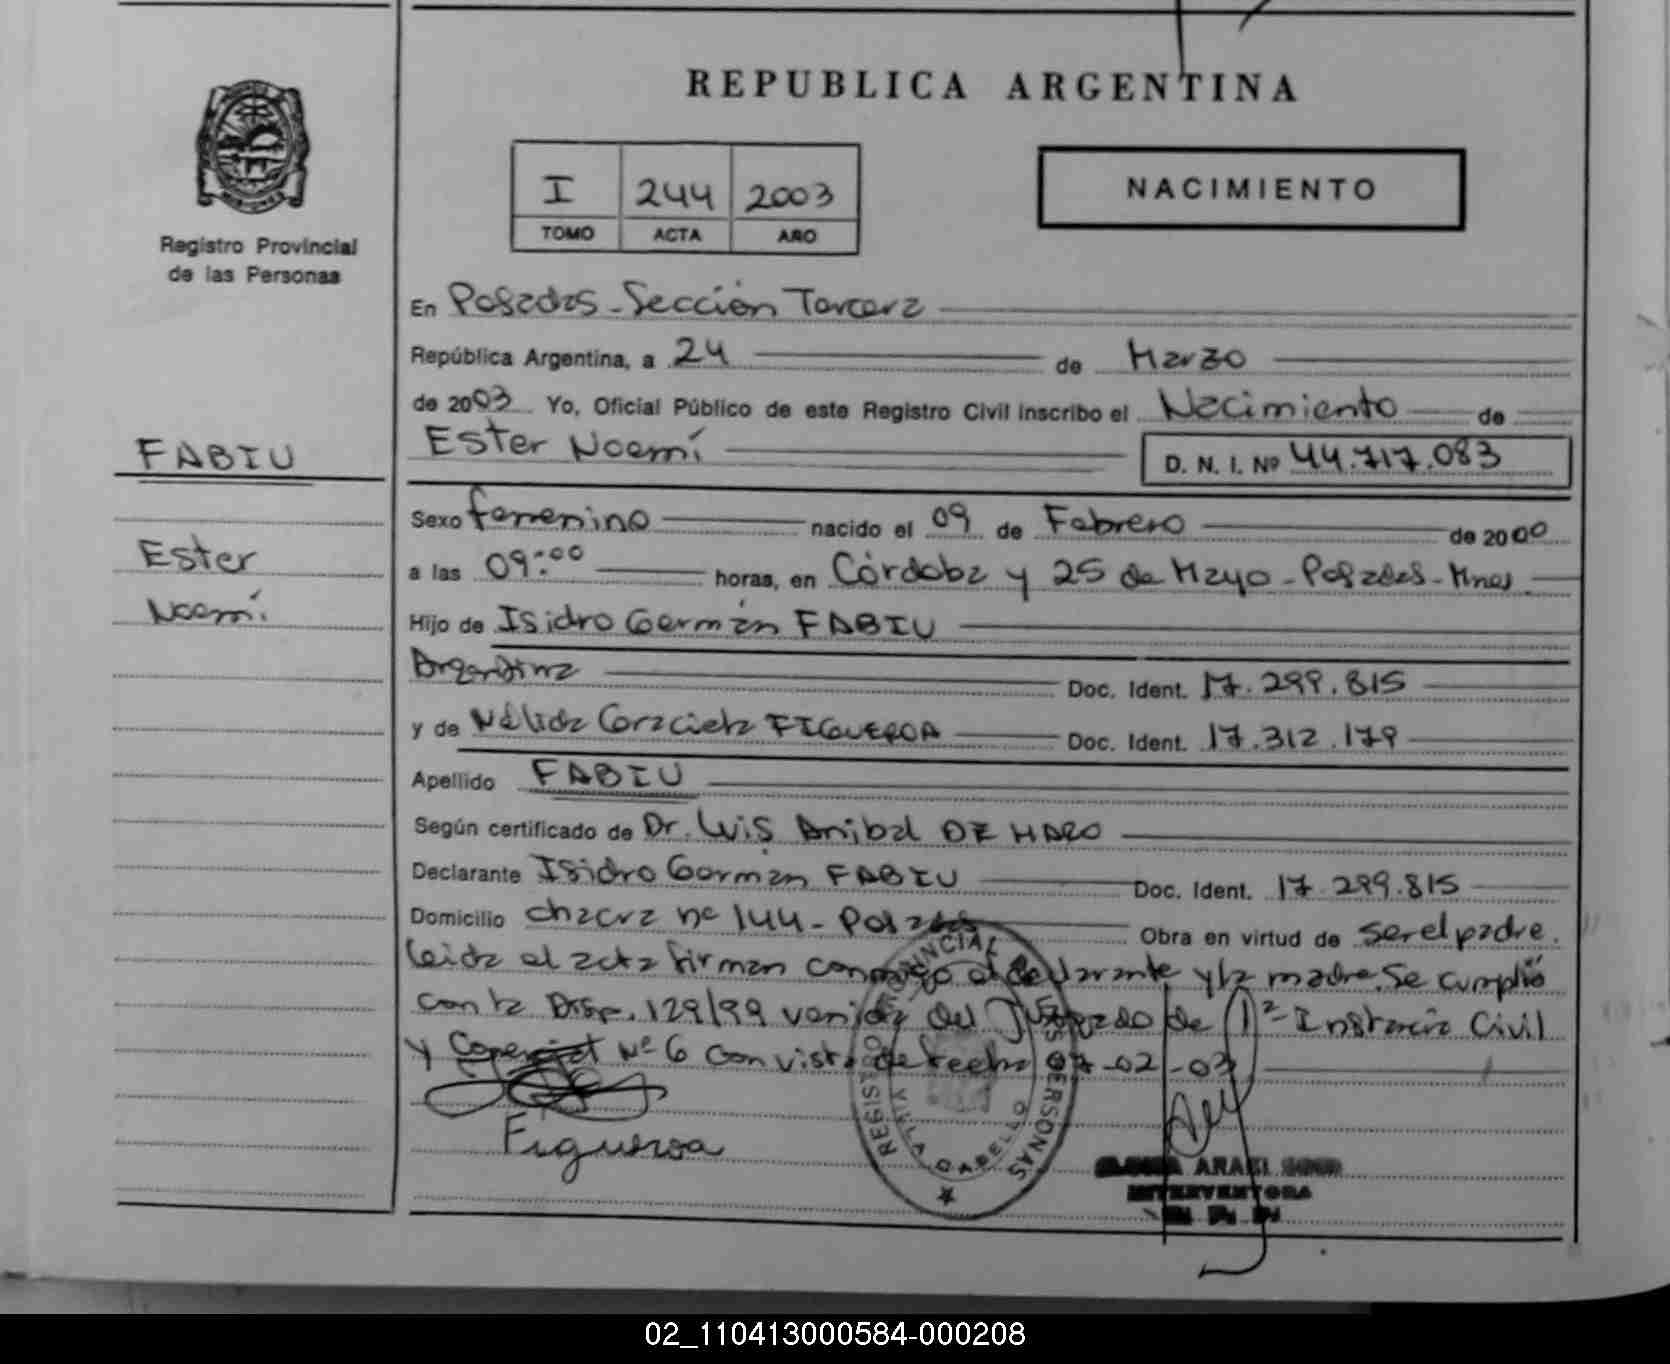 REPUBLICA ARGENTINA
I 244 2003
TOMO ACTA AÑO
NACIMIENTO
Registro Provincial
de las Personas
En Posadas - Sección Tercera
República Argentina, a 24 de Marzo
de 2003 Yo, Oficial Público de este Registro Civil inscribo el Nacimiento de
Ester Noemí D. N. I. Nº 44.717.083
FABIU
Ester
Noemí
Sexo femenino nacido el 09 de Febrero de 2000
a las 09:00 horas, en Córdoba y 25 de Mayo - Posadas - Mnes
Hijo de Isidro Germán FABIU
Argentina Doc. Ident. 17.299.815
y de Nélida Graciela FIGUEROA Doc. Ident. 17.312.179
Apellido FABIU
Según certificado de Dr. Luis Anibal DE HARO
Declarante Isidro Germán FABIU Doc. Ident. 17.299.815
Domicilio chacra nº 144 - Posadas Obra en virtud de ser el padre.
leida el acta firman conmigo el declarante y la madre. Se cumplió
con la Disp. 129/99 venida del Juzgado de 1ª Instancia Civil
y Nº 6 con vista de fecha 07-02-03
Figueroa
REGISTRO PROVINCIAL DE LAS PERSONAS
VILLA CABELLO
ARAKI
INTERVENTORA
02_110413000584-000208